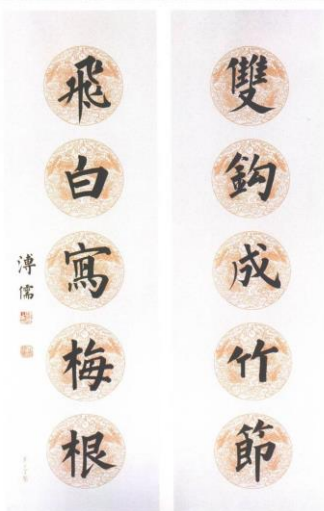 雙鈎成竹節
飛白寫梅根
溥儒